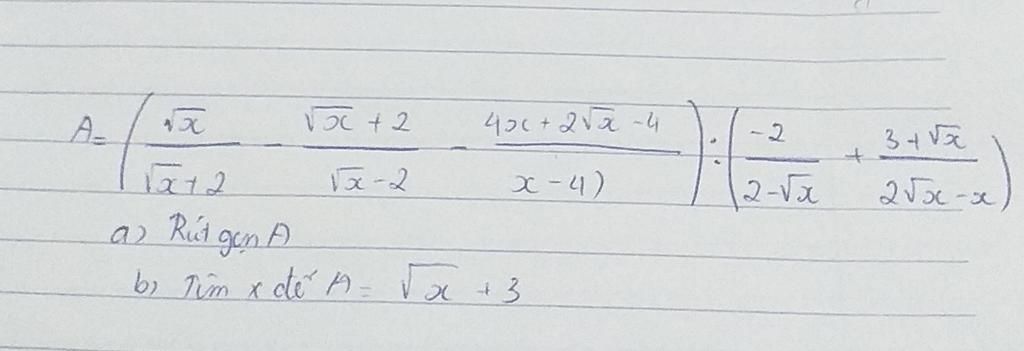 A = ( √x / √x + 2 - √x + 2 / √x - 2 - 4x + 2√x - 4 / x - 4) ) : ( -2 / 2 - √x + 3 + √x / 2√x - x )
a) Rút gọn A
b) Tìm x để A = √x + 3